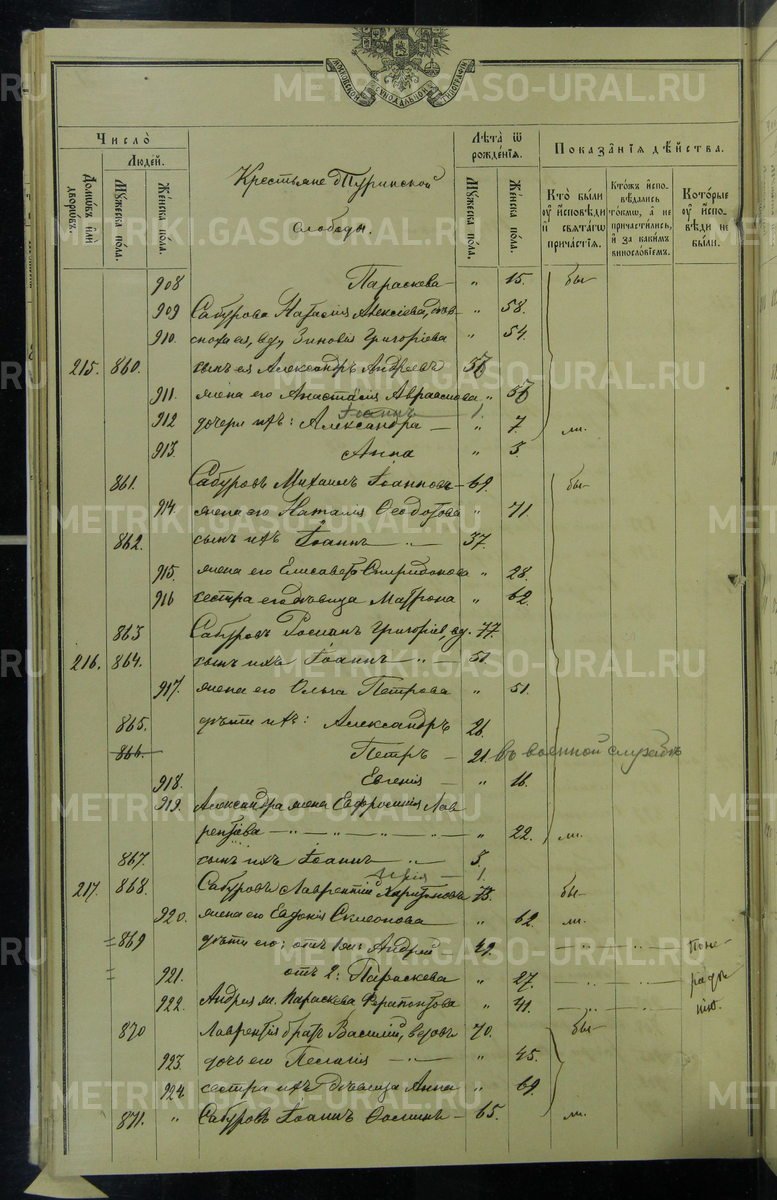 МОСКОВСКОЙ СѴНОДАЛЬНОЙ ТѴПОГРАФІИ
Число̀
Людей.
Домовъ или дворовъ.
Мужеска пола.
Женска пола.
Крестьяне Туринской
слободы.
Лѣта ѿ рожденія.
Мужеска пола.
Женска пола.
Показанія дѣйства.
Кто были у исповѣди и святаго причастія.
Ктожъ исповѣдались токмо, а не причастились, и за какимъ винословіемъ.
Которые у исповѣди не были.
908 Параскева " 15. бы
909 Сабурова Наталія Алексіева, " 58.
910. сноха ея, вд. Зиновія Григоріева " 54.
215. 860. сынъ ея Александръ Андреевъ 37
911. жена его Анастасія Авраамова " 37
Іоаннъ 1.
912 дочери ихъ: Александра — " 7. ли.
913. Анна " 3.
861. Сабуровъ Михаилъ Іоанновъ — 69. бы
914. жена его Наталія Ѳеодотова " 71.
862. сынъ ихъ Іоаннъ — " — 37.
915. жена его Елисавета Спиридонова " 28.
916 сестра его дѣвица Матрона " 62.
863 Сабуровъ Романъ Григоріев, вд. 77.
216. 864. сынъ ихъ Іоаннъ — " — 51.
917. жена его Ольга Петрова " 51.
865. дѣти ихъ: Александръ 26.
866. Петръ — 21. въ военной службѣ
918. Евгенія — " 16.
919. Александра жена Евфросинія Лав
рентіева — " — " — " — " 22. ли.
867. сынъ ихъ Іоаннъ — " — 3.
1.
217. 868. Сабуровъ Лаврентій Харитоновъ 73. бы
920. жена его Евдокія Симеонова " 62. ли.
= 869 дѣти его: отъ 1 жи: Андрей 49. — .. — .. — — поне-
= 921. отъ 2: Параскева " 27. — .. — .. — радѣ
922. Андрея ж. Параскева Ферапонтова " 41. — .. — .. — нію.
870 Лаврентія братъ Василій, вдовъ 70. бы
923. дочь его Пелагія — " — " 45.
924 сестра ихъ дѣвица Анна " 69.
871. " Сабуровъ Іоаннъ Ѳоминъ — 65. ли.
METRIKI.GASO-URAL.RU